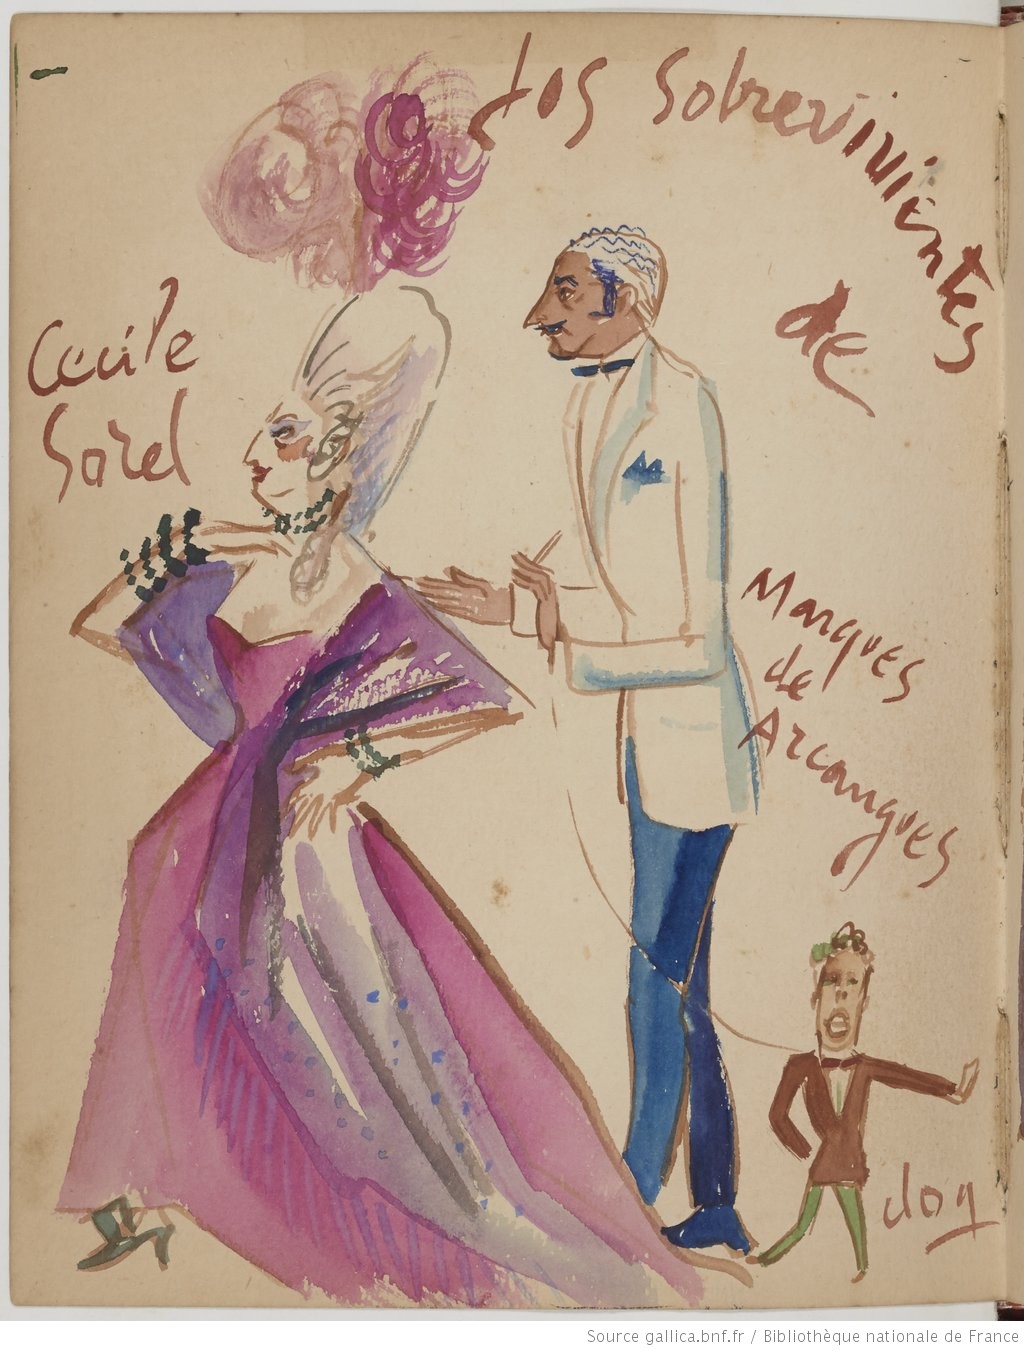 Los Sobrevivientes
de
Cecile
Sorel
Marques
de
Arcangues
dog
Source gallica.bnf.fr / Bibliothèque nationale de France